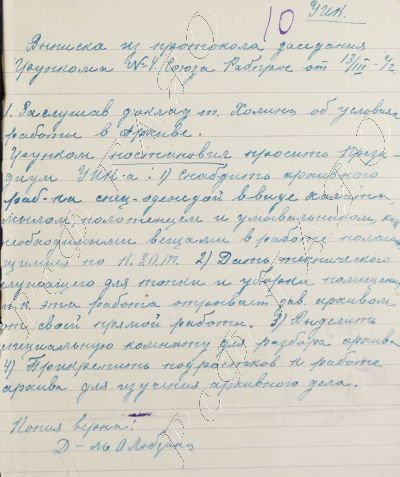 10 УИК.
Выписка из протокола заседания
Групкома №4 Союза Рабпрос от 13/III-
1. Заслушав доклад т. Холина об условиях
работы в Архиве.
Групком постановил просить Прези-
диум УИК-а: 1) Снабдить архивного
раб-ка спец-одеждой в виде халата,
мылом полотенцем и умывальником, как
необходимыми вещами в работе полага-
ющимися по К.З.О.Т. 2) Дать технического
служащего для топки и уборки помещения
т.к. эта работа отрывает зав. архивом
от своей прямой работы. 3) Выделить
специальную комнату для разбора архива
4) Прикрепить подростков к работе
архива для изучения архивного дела.
Копия верна:
Д-ль О Лобзина